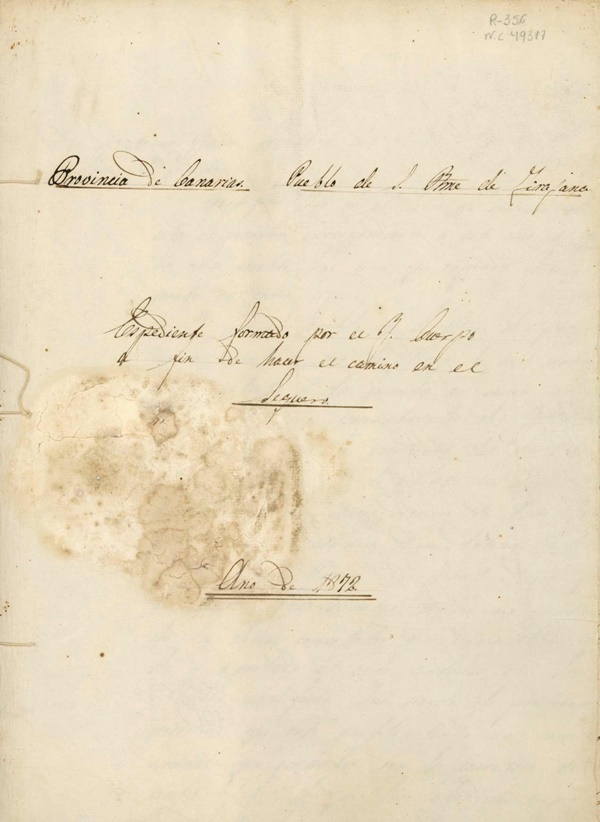 R-356
N.C 49317
Provincia de Canarias. Pueblo de S. Bme de Tirajana
Espediente formado por el Y. Cuerpo
a fin de hacer el camino en el
Seguero.
Año de 1872.